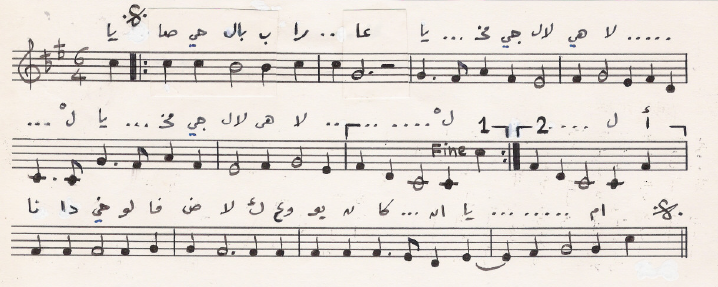 يا صا حي بال ب را .. عا يا ... مخ جي لال هي لا .....
6 4
... لْ يا ... مخ جي لال هى لا .. .. .... لْ 1 2 .... ل أ
Fine
نا دا خي لو فا ض لا ك وع يو ن كا ... ان يا ... ...... ام